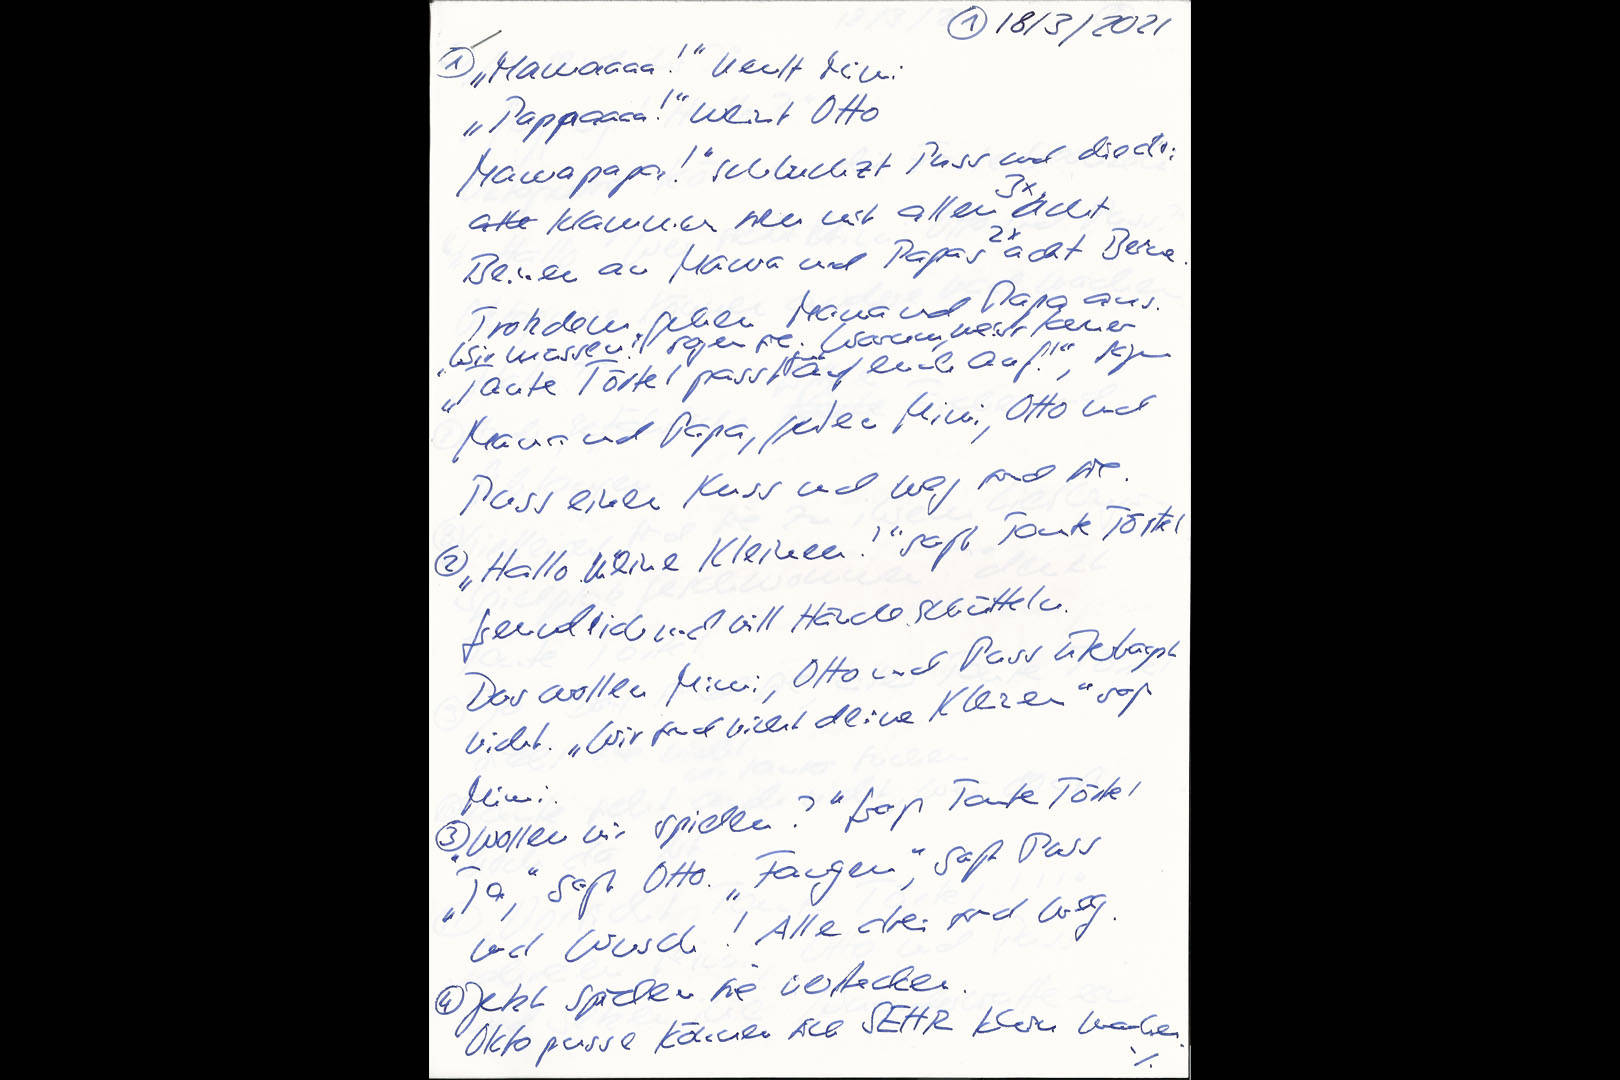 ① 18/3/2021
① „Mamaaaa!“ heult Mimi
„Pappaaaa!“ weint Otto
Mamapapa!“ schluchzt Puss und die drei
klammern sich mit allen 3x acht
Beinen an Mama und Papas 2x acht Beine.
Trotzdem gehen Mama und Papa aus.
„Wir müssen!“ sagen sie. Warum, weiß keiner
„Tante Törtel passt auf euch auf!“, sagen
Mama und Papa, geben Mimi, Otto und
Puss einen Kuss und weg sind sie.
② „Hallo meine Kleinen!“ sagt Tante Törtel
freundlich und will Hände schütteln.
Das wollen Mimi, Otto und Puss überhaupt
nicht. „Wir sind nicht deine Kleinen“ sagt
Mimi.
③ „Wollen wir spielen?“ fragt Tante Törtel
„Ja,“ sagt Otto. „Fangen“, sagt Puss
und wusch! Alle drei sind weg.
④ Jetzt spielen sie verstecken.
Oktopusse können sich SEHR klein machen.
./.